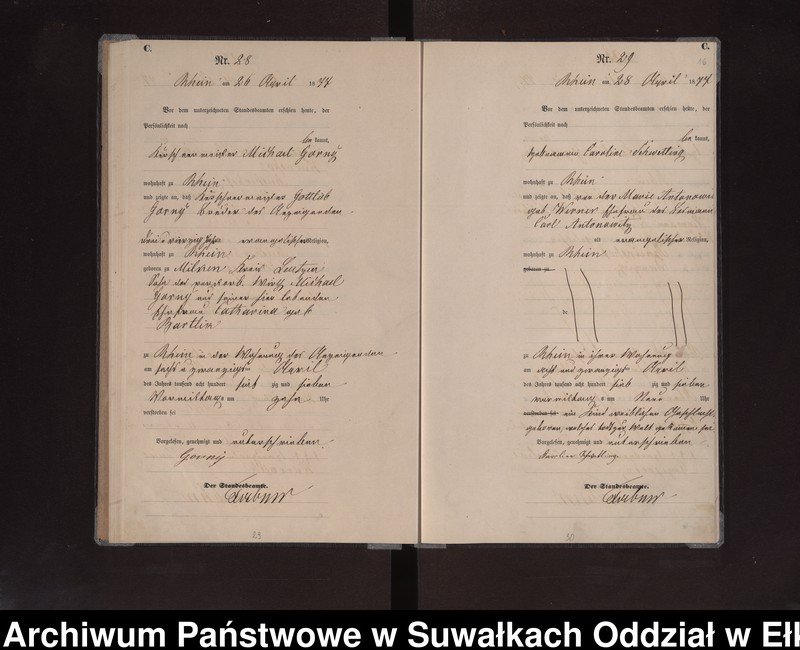 C.
Nr. 28
Rhein am 26 April 1877
Vor dem unterzeichneten Standesbeamten erschien heute, der
Persönlichkeit nach
be kannt,
Kürschnermeister Michael Gorny
wohnhaft zu Rhein
und zeigte an, daß Kürschnermeister Gottlieb
Gorny Bruder des Anzeigenden
drei u vierzig Jahr evangelischer Religion,
wohnhaft zu Rhein
geboren zu Milken Kreis Loetzen
Sohn des verstorb. Wirth Michael
Gorny und seiner hier lebenden
Ehefrau Catharina geb
Bartlin
zu Rhein in der Wohnung des Anzeigenden
am sechs u zwanzigsten April
des Jahres tausend acht hundert sieb zig und sieben
Vormittags um zehn Uhr
verstorben sei
Vorgelesen, genehmigt und unterschrieben
Gorny
Der Standesbeamte.
29
C.
Nr. 29
16
Rhein am 28 April 1877
Vor dem unterzeichneten Standesbeamten erschien heute, der
Persönlichkeit nach
be kannt,
Hebeamme Caroline Schwetling
wohnhaft zu Rhein
und zeigte an, daß von der Marie Antonowitz
geb. Werner Ehefrau des Losmann
Carl Antonowitz
alt evangelischer Religion,
wohnhaft zu Rhein
geboren zu
zu Rhein in ihrer Wohnung
am acht und zwanzigsten April
des Jahres tausend acht hundert sieb zig und sieben
vormittags um Neun Uhr
verstorben sei ein Kind weiblichen Geschlechts
geboren, welches todt zur Welt gekommen sei
Vorgelesen, genehmigt und unterschrieben
Der Standesbeamte.
30
Archiwum Państwowe w Suwałkach Oddział w Ełk